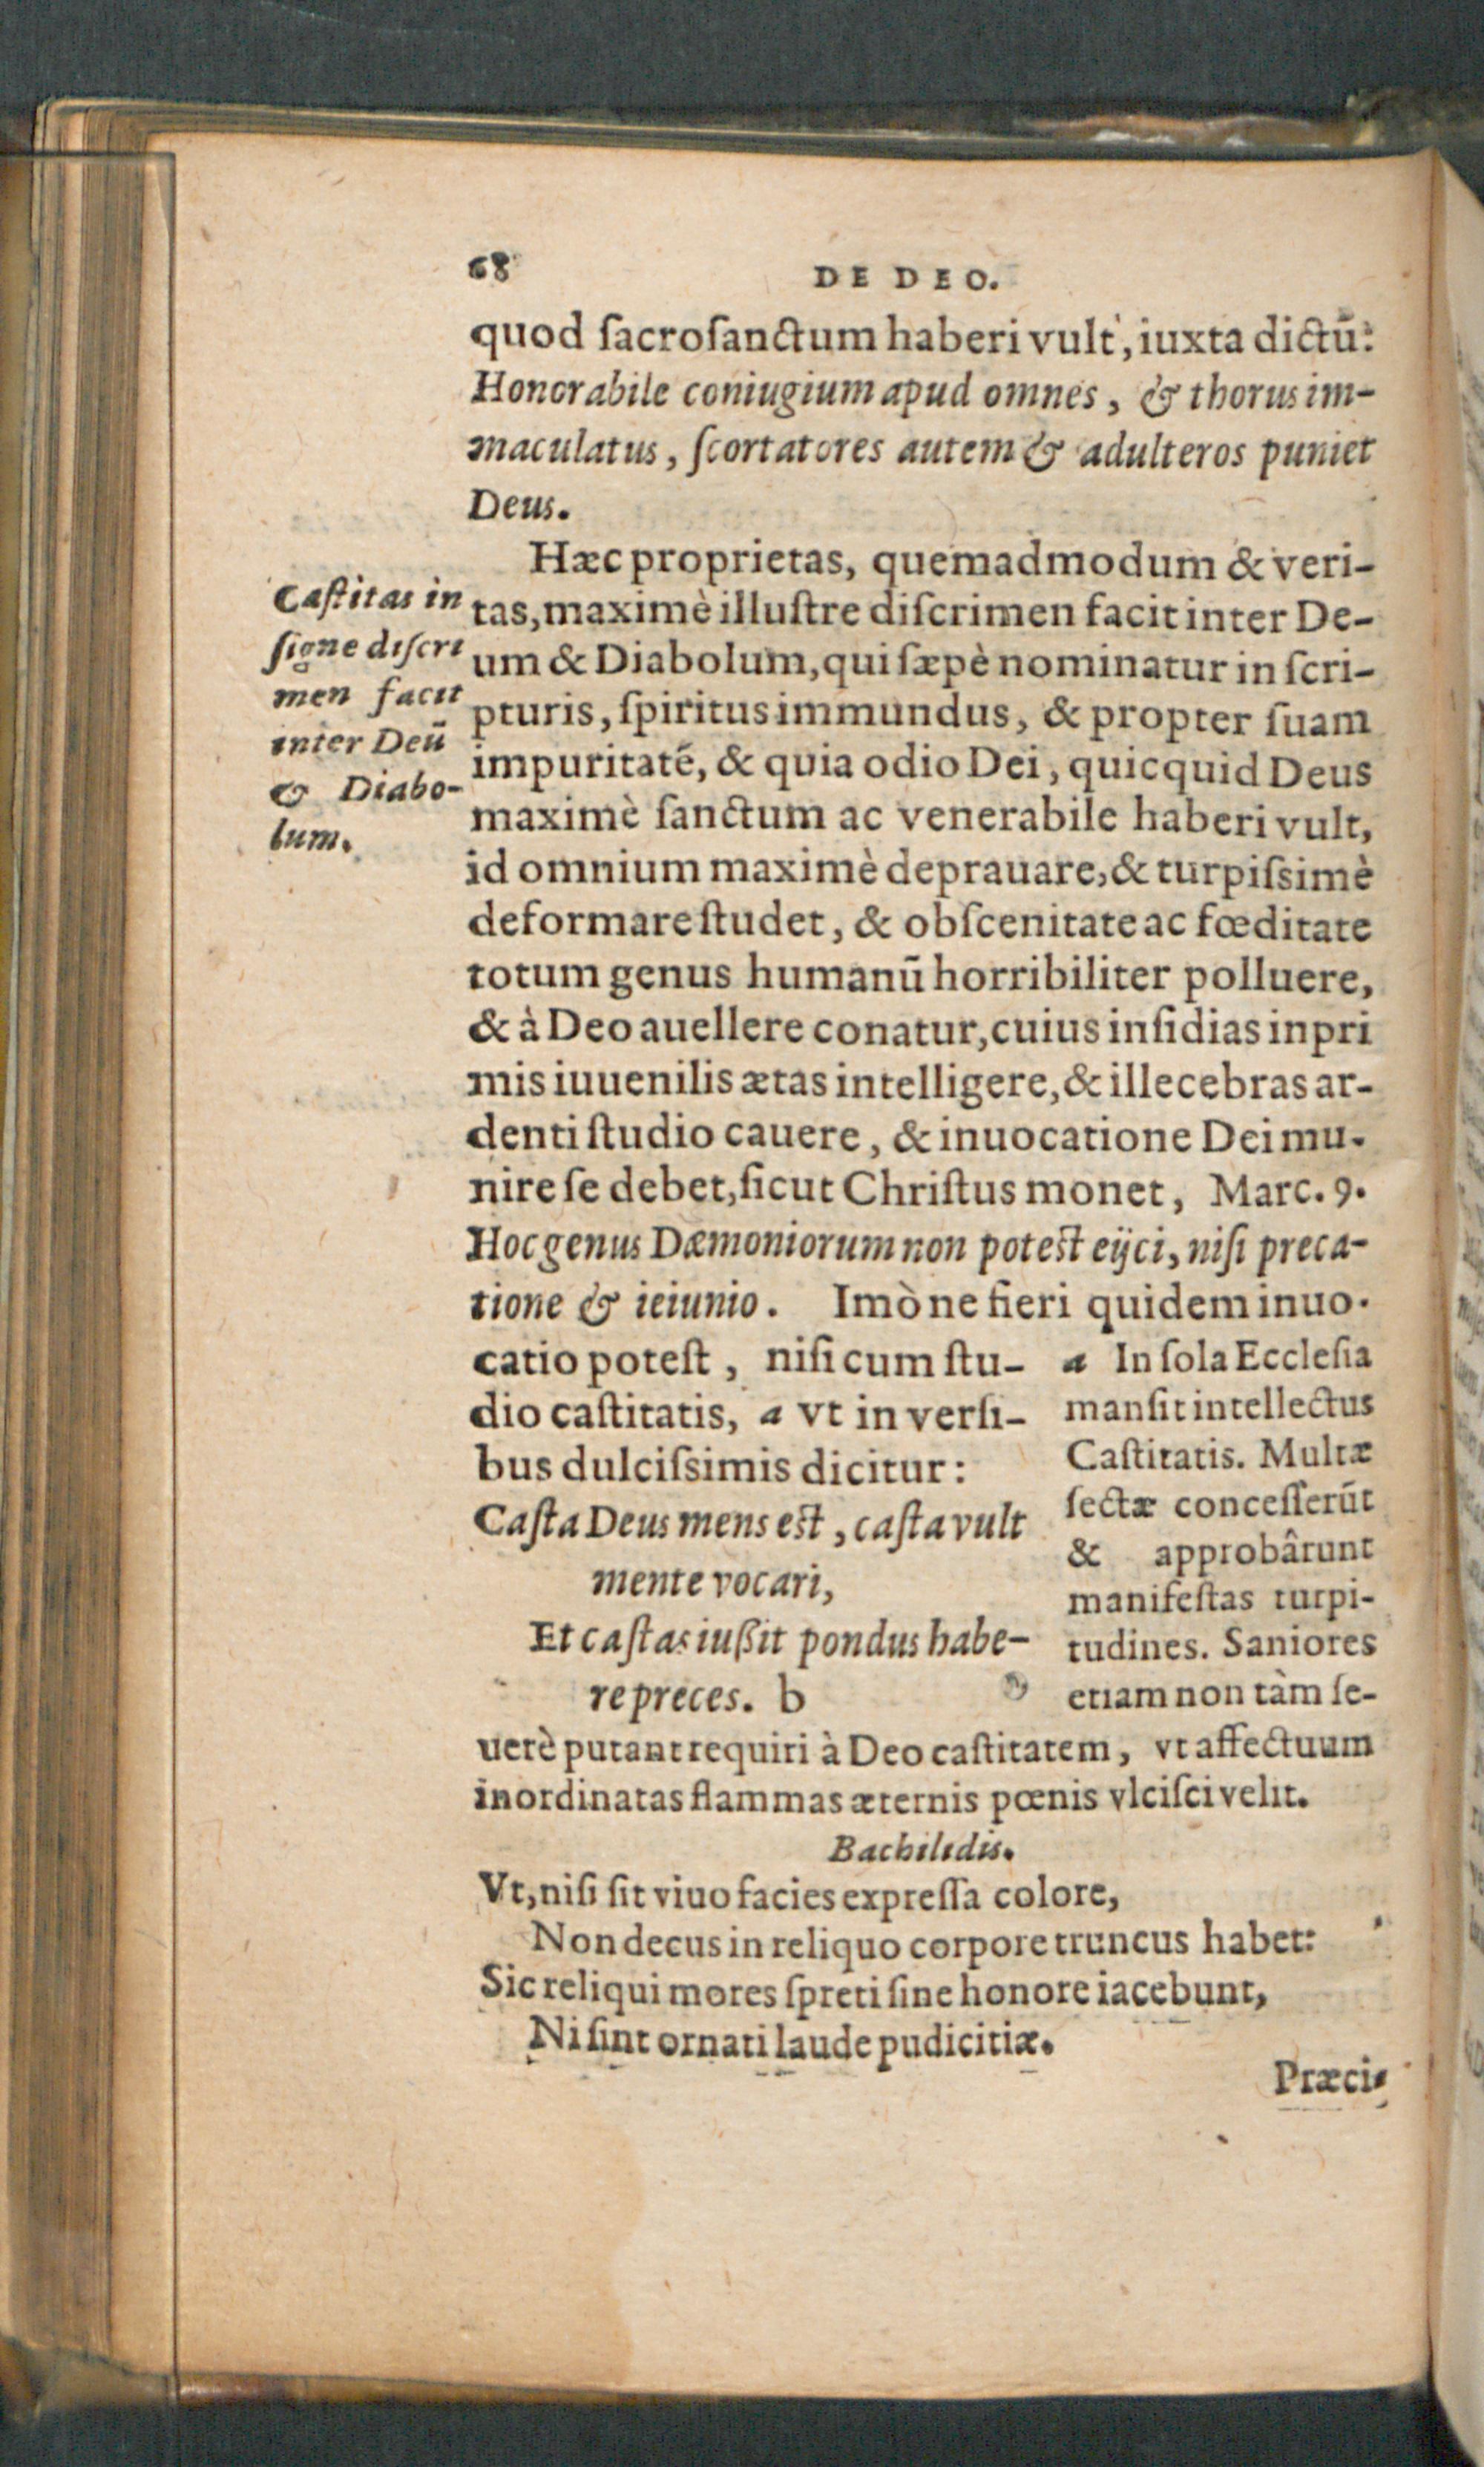 68 DE DEO.
quod ſacroſanctum haberi vult, iuxta dictū:
Honorabile coniugium apud omnes, & thorus im-
maculatus, ſcortatores autem & adulteros puniet
Deus.
Hæc proprietas, quemadmodum & veri-
tas, maximè illuſtre diſcrimen facit inter De-
um & Diabolum, qui ſæpè nominatur in ſcri-
pturis, ſpiritus immundus, & propter ſuam
impuritatē, & quia odio Dei, quicquid Deus
maximè ſanctum ac venerabile haberi vult,
id omnium maximè deprauare, & turpiſsimè
deformare ſtudet, & obſcenitate ac fœditate
totum genus humanū horribiliter polluere,
& à Deo auellere conatur, cuius inſidias inpri
mis iuuenilis ætas intelligere, & illecebras ar-
denti ſtudio cauere, & inuocatione Dei mu-
nire ſe debet, ſicut Chriſtus monet, Marc. 9.
Hoc genus Dæmoniorum non poteſt eijci, niſi preca-
tione & ieiunio. Imò ne fieri quidem inuo-
catio poteſt, niſi cum ſtu-
dio caſtitatis, a vt in verſi-
bus dulciſsimis dicitur:
Caſta Deus mens eſt, caſta vult
mente vocari,
Et caſtas iußit pondus habe-
re preces. b
Caſtitas in
ſigne diſcri
men facit
inter Deū
& Diabo-
lum.
a In ſola Eccleſia
manſit intellectus
Caſtitatis. Multæ
ſectæ conceſſerūt
& approbârunt
manifeſtas turpi-
tudines. Saniores
etiam non tàm ſe-
uerè putant requiri à Deo caſtitatem, vt affectuum
inordinatas flammas æternis pœnis vlciſci velit.
Bachilidis.
Vt, niſi ſit viuo facies expreſſa colore,
Non decus in reliquo corpore truncus habet:
Sic reliqui mores ſpreti ſine honore iacebunt,
Ni ſint ornati laude pudicitiæ.
Præci-